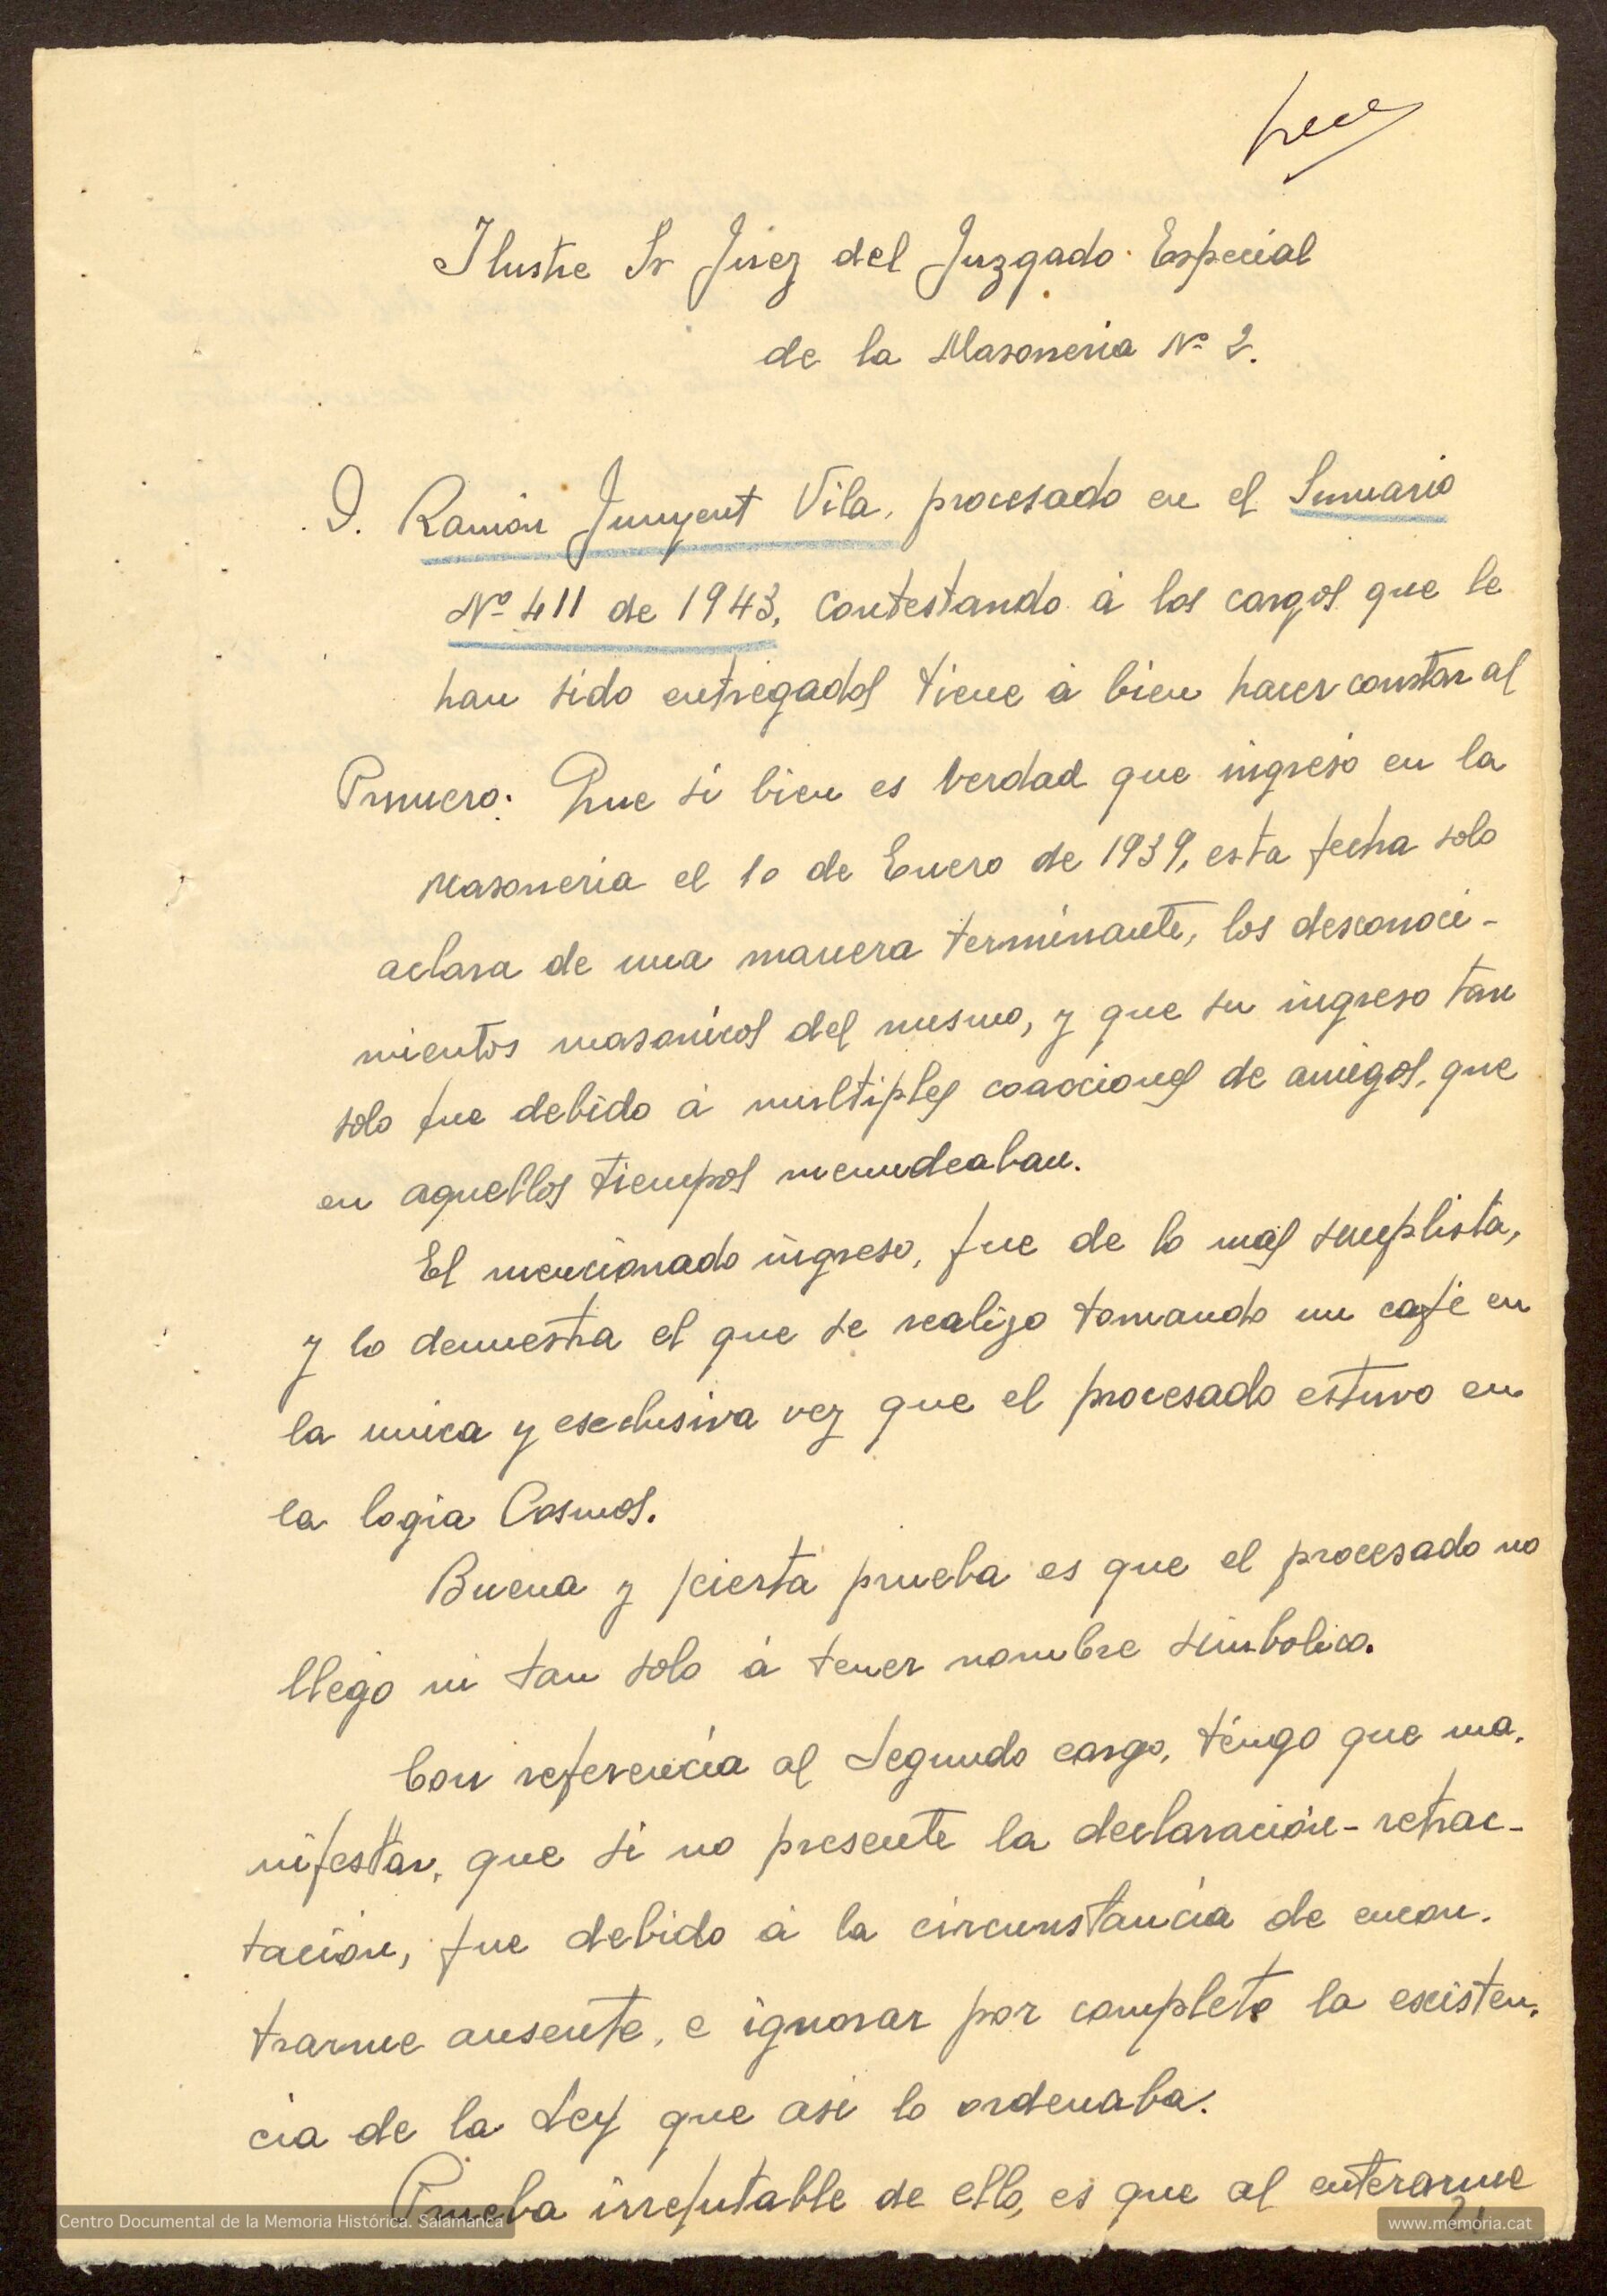 Ilustre Sr Juez del Juzgado Especial
de la Masoneria Nº 2.
D. Ramón Junyent Vila, procesado en el Sumario
Nº 411 de 1943, contestando á los cargos que le
han sido entregados tiene á bien hacer constar al
Primero. Que si bien es verdad que ingresó en la
Masoneria el 10 de Enero de 1939, esta fecha solo
aclara de una manera terminante, los desconoci-
mientos masonicos del mismo, y que su ingreso tan
solo fue debido á multiples coacciones de amigos, que
en aquellos tiempos menudeaban.
El mencionado ingreso, fue de lo mas simplista,
y lo demuestra el que se realizo tomando un café en
la unica y esclusiva vez que el procesado estuvo en
la logia Cosmos.
Buena y cierta prueba es que el procesado no
llego ni tan solo á tener nombre simbolico.
Con referencia al Segundo cargo, téngo que ma.
nifestar, que si no presente la declaración-retrac-
tación, fue debido á la circunstancia de encon.
trarme ausente, e ignorar por completo la existen.
cia de la Ley que asi lo ordenaba.
Prueba irrefutable de ello, es que al enterarme
Centro Documental de la Memoria Histórica. Salamanca
www.memoria.cat